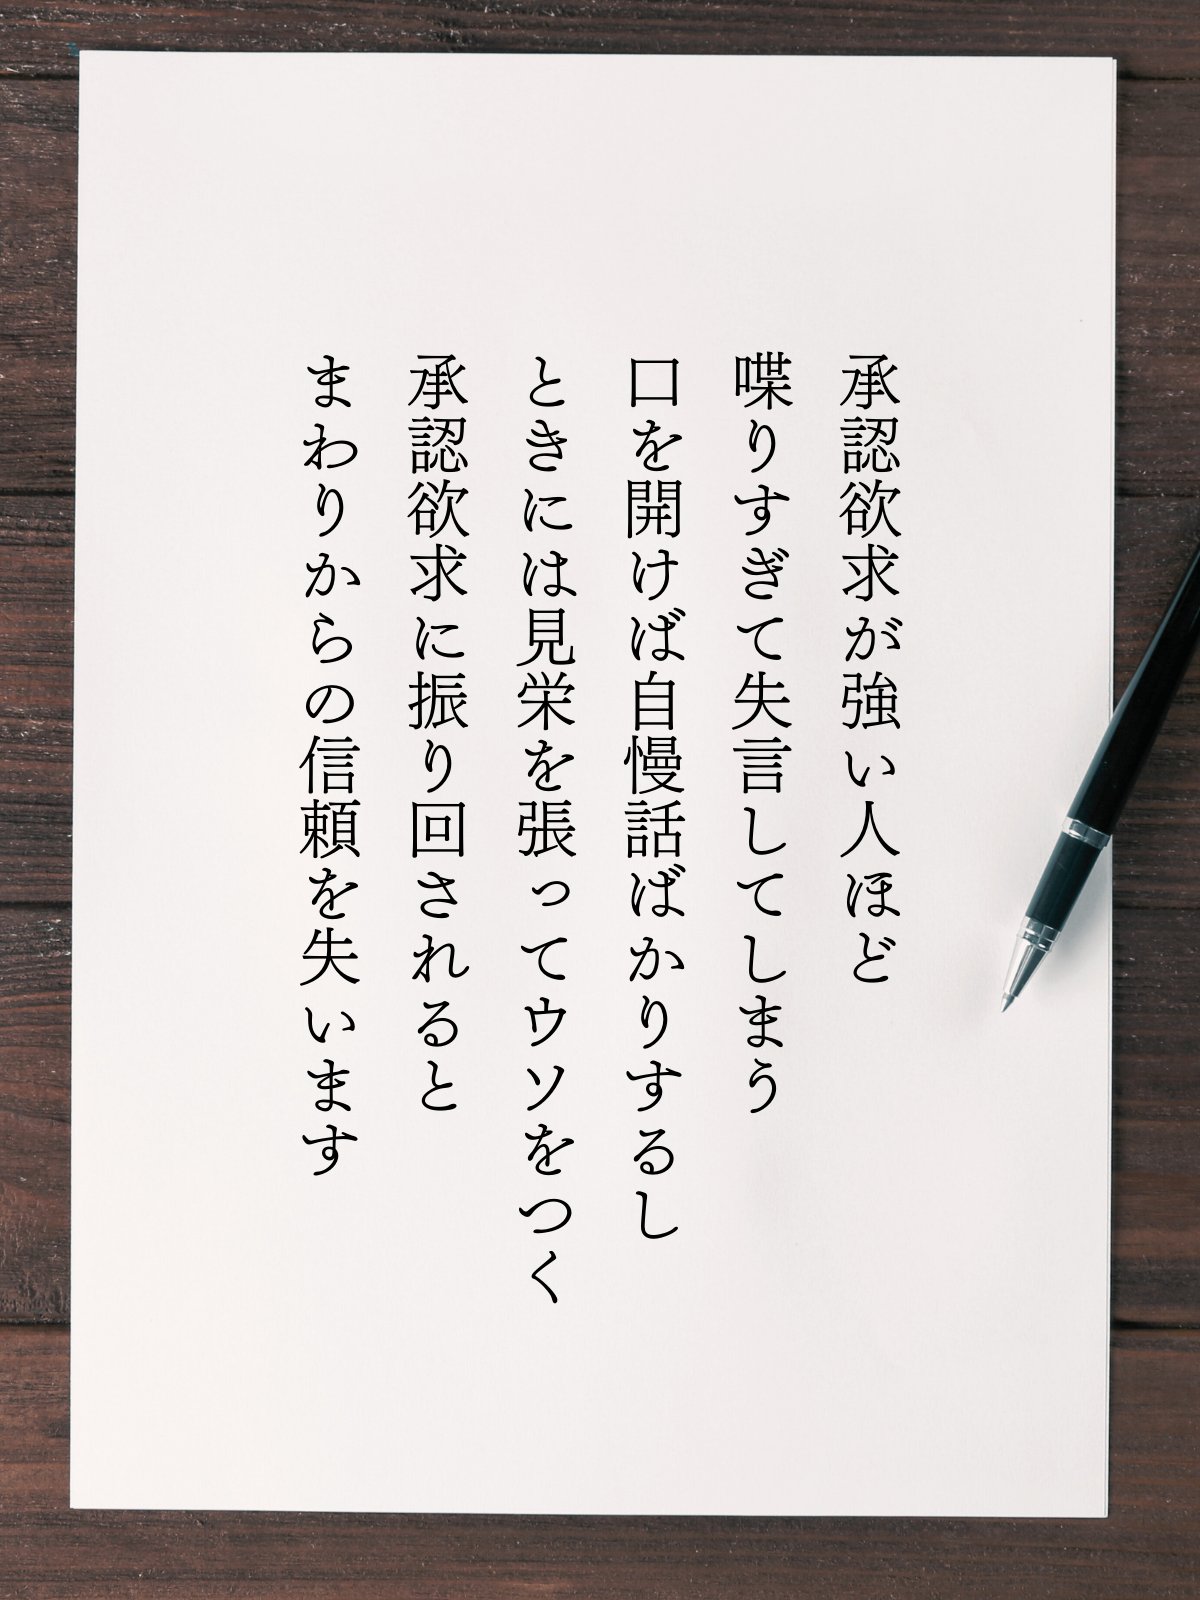 承認欲求が強い人ほど
喋りすぎて失言してしまう
口を開けば自慢話ばかりするし
ときには見栄を張ってウソをつく
承認欲求に振り回されると
まわりからの信頼を失います